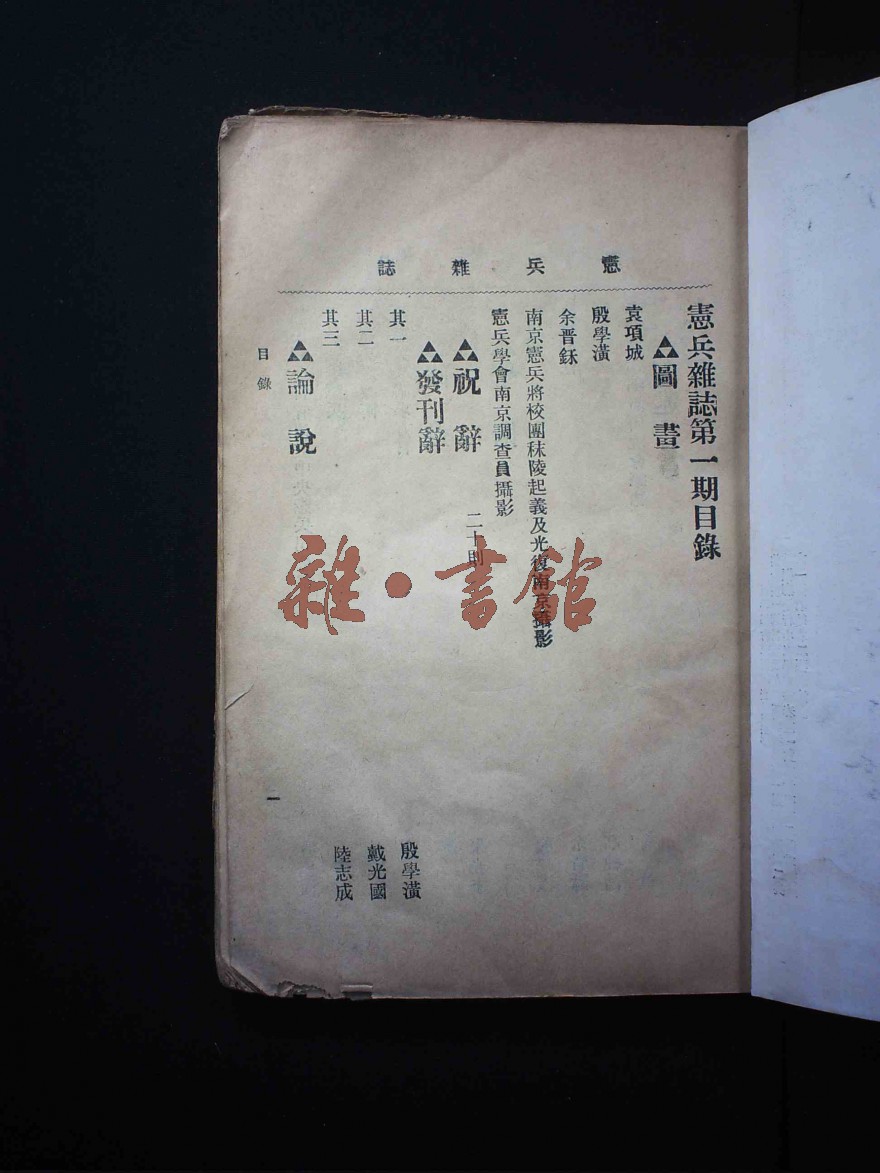 憲兵雜誌
憲兵雜誌第一期目錄
圖畫
袁項城
殷學潢
余晉龢
南京憲兵將校團秣陵起義及光復南京攝影
憲兵學會南京調查員攝影
祝辭 二十則
發刊辭
其一 殷學潢
其二 戴光國
其三 陸志成
論說
目錄
一
雜·書館